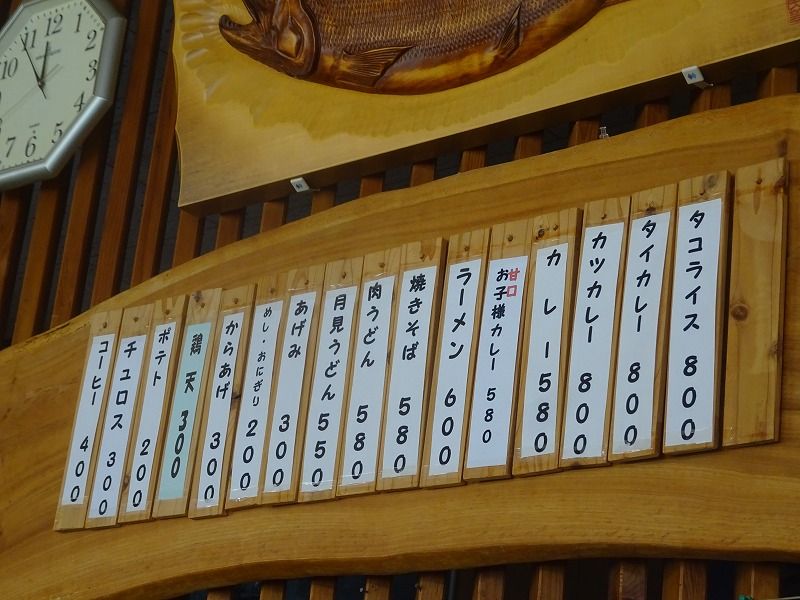 タコライス 800
タイカレー 800
カツカレー 800
カレー 580
甘口
お子様カレー 580
ラーメン 600
焼きそば 580
肉うどん 580
月見うどん 550
あげみ 300
めし・おにぎり 200
からあげ 300
鶏天 300
ポテト 200
チュロス 300
コーヒー 400
11 1 2 3 4 5 6 7 8 9 10